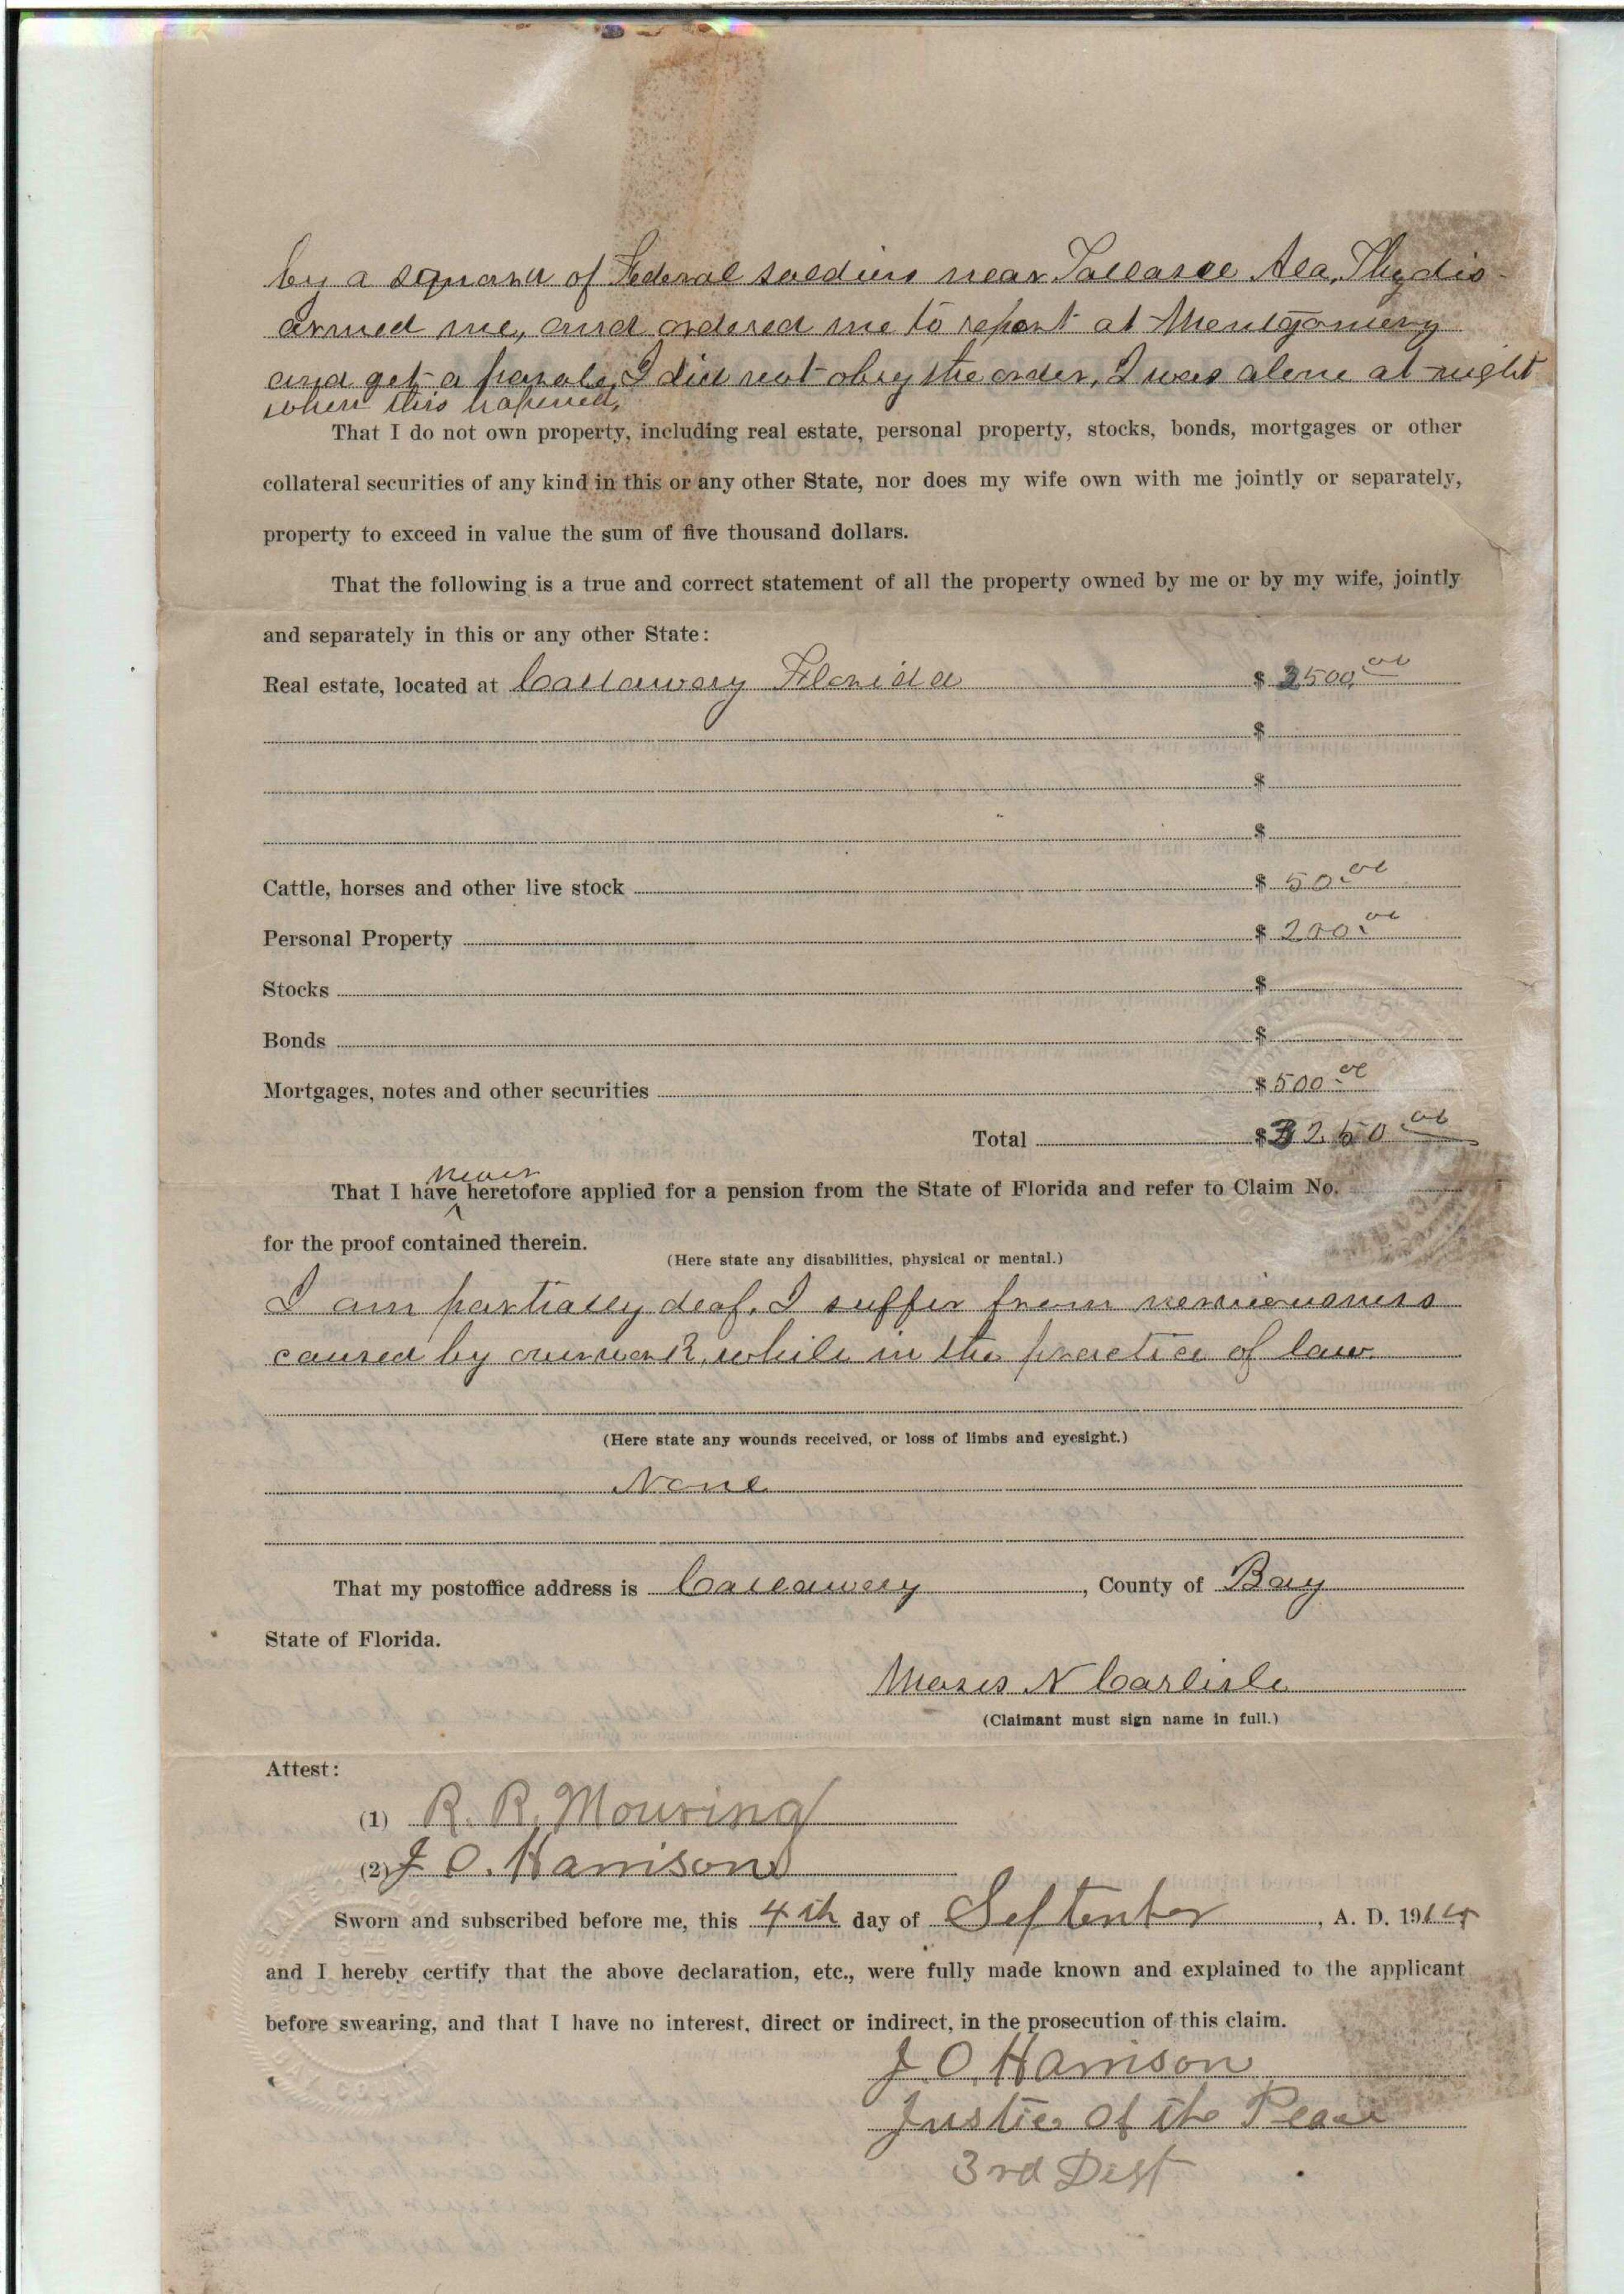 by a squard of Federal soldiers near Tallasee Ala, They dis-
armed me, and ordered me to report at Montgomery
and get a parole, I did not obey the order, I was alone at night
when this hapened,
That I do not own property, including real estate, personal property, stocks, bonds, mortgages or other
collateral securities of any kind in this or any other State, nor does my wife own with me jointly or separately,
property to exceed in value the sum of five thousand dollars.
That the following is a true and correct statement of all the property owned by me or by my wife, jointly
and separately in this or any other State:
Real estate, located at Callaway Florida $ 2500.00
$
$
$
Cattle, horses and other live stock $ 50.00
Personal Property $ 200.00
Stocks $
Bonds $
Mortgages, notes and other securities $ 500.00
Total $ 3250.00
never
That I have heretofore applied for a pension from the State of Florida and refer to Claim No.
for the proof contained therein.
(Here state any disabilities, physical or mental.)
I am partially deaf. I suffer from nerviousness
caused by overwork while in the practice of law.
(Here state any wounds received, or loss of limbs and eyesight.)
None
That my postoffice address is Callaway, County of Bay
State of Florida.
Moses N Carlisle
(Claimant must sign name in full.)
Attest:
(1) R. R. Mouring
(2) J O. Harrison
Sworn and subscribed before me, this 4th day of September, A. D. 1914
and I hereby certify that the above declaration, etc., were fully made known and explained to the applicant
before swearing, and that I have no interest, direct or indirect, in the prosecution of this claim.
J. O. Harrison
Justice of the Peace
3rd Dist